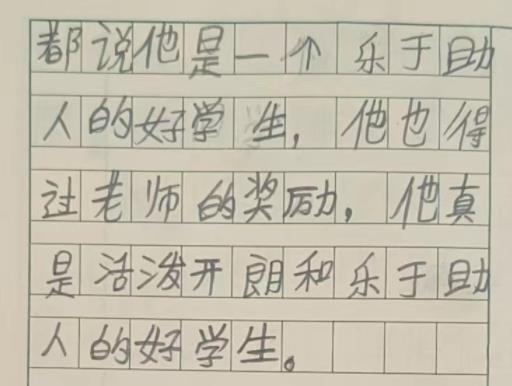 都说他是一个乐于助
人的好学生，他也得
过老师的奖励，他真
是活泼开朗和乐于助
人的好学生。